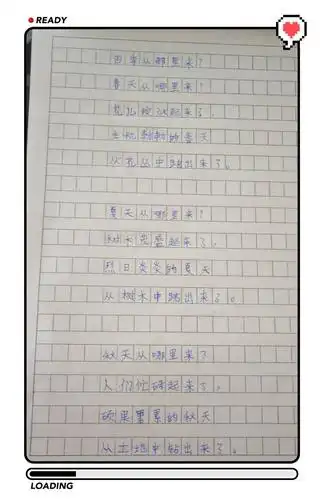 READY
四季从哪里来？
春天从哪里来？
花儿绽放起来了，
生机勃勃的春天
从花丛中踏出来了。
夏天从哪里来？
树木茂盛起来了，
烈日炎炎的夏天
从树木中踏出来了。
秋天从哪里来？
人们忙碌起来了，
硕果累累的秋天
从土地中钻出来了。
LOADING